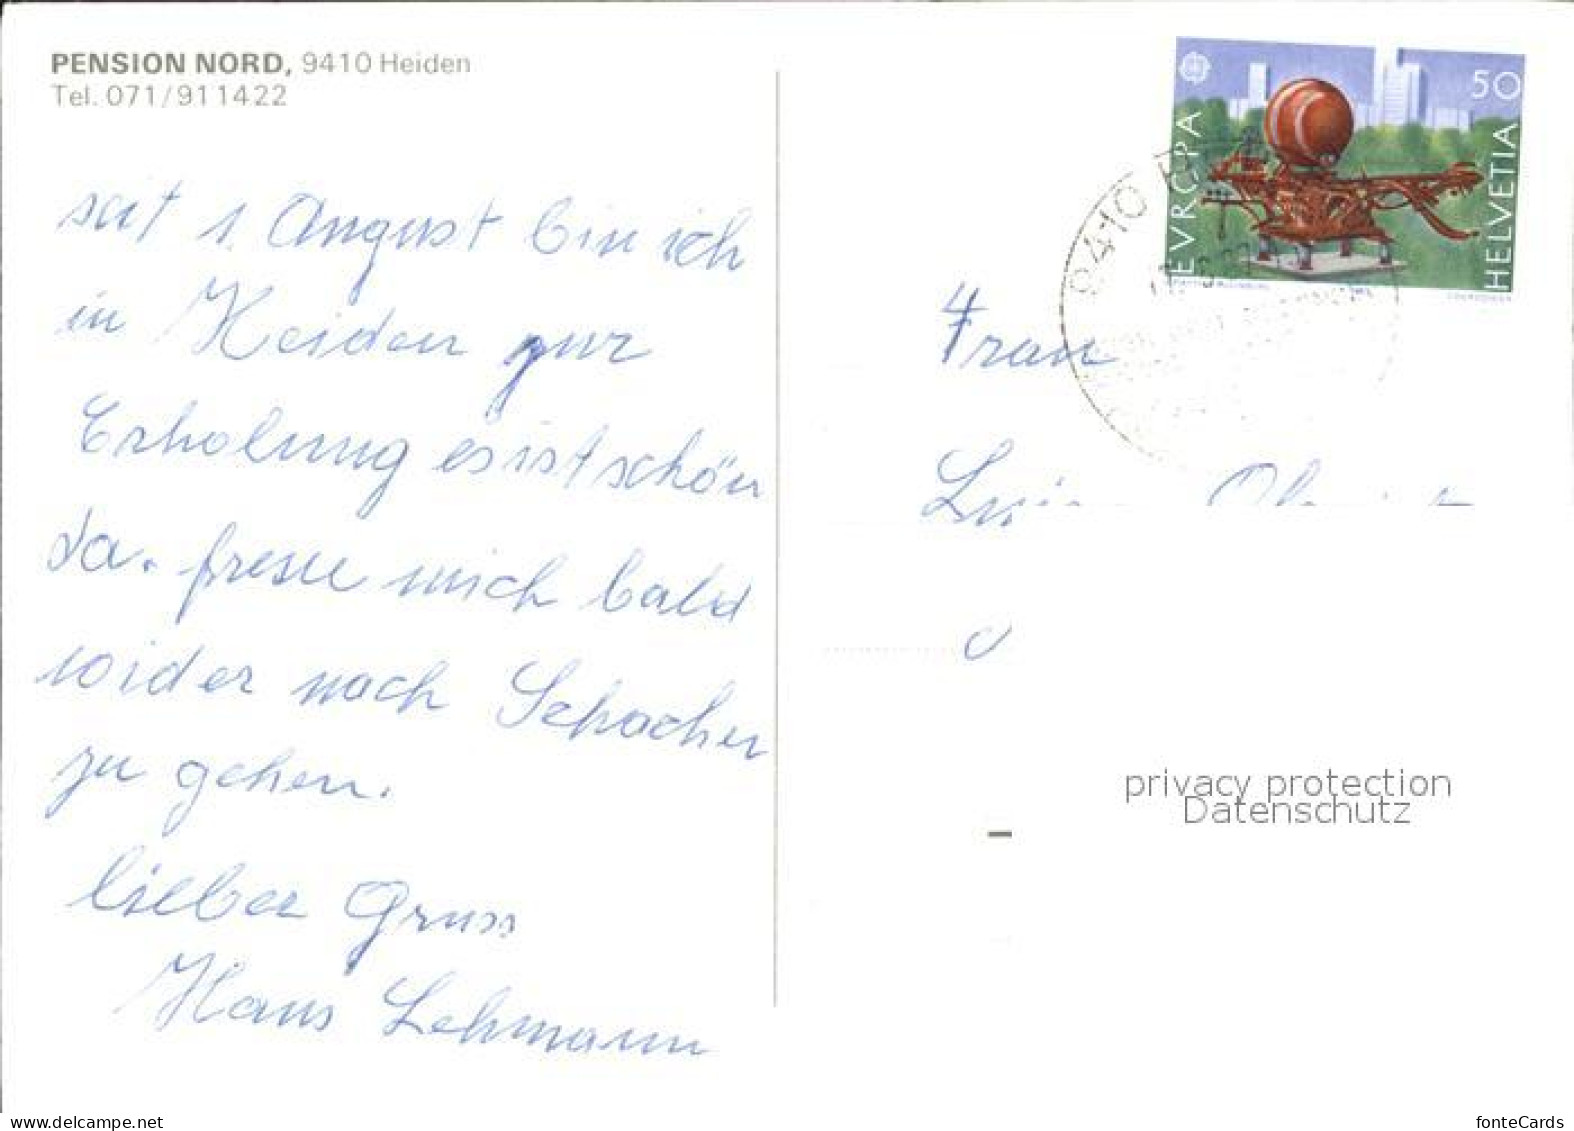 PENSION NORD, 9410 Heiden
Tel. 071/911422
seit 1. August bin ich
in Heiden zur
Erholung es ist schön
da. freue mich bald
wider nach Schachen
zu gehen.
lieber Gruss
Hans Lehmann
EUROPA
50
HELVETIA
9410
Frau
privacy protection
Datenschutz
www.delcampe.net
fonteCards